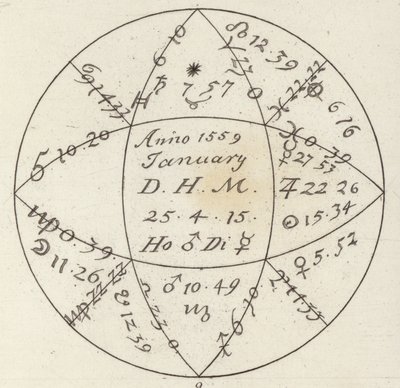 6 10
☊ 12.39
✷
♄ 7 57
♓ 22 22
6 16
Anno 1559
January
D. H. M.
25. 4. 15.
Ho ♂ Di ☿
10.20
♓ 0 39
27 57
♃ 22 26
☉ 15.34
♀ 5.52
♍ 0.39
☾ 11.26
♍ 22 22
☋ 12 39
♂ 10.49
♏
6 10